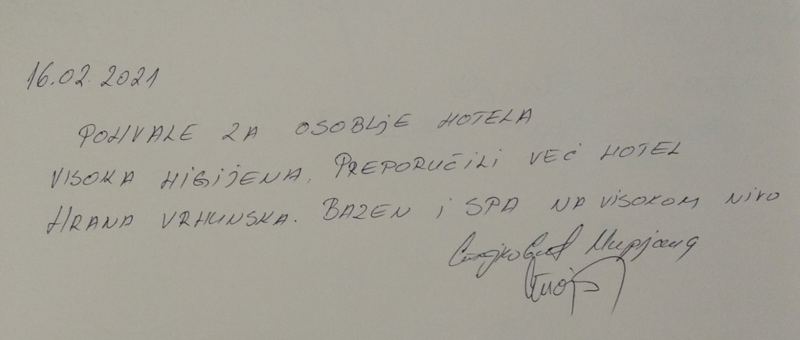 16.02.2021
POHVALE ZA OSOBLJE HOTELA
VISOKA HIGIJENA. PREPORUČILI VEĆ HOTEL
HRANA VRHUNSKA. BAZEN I SPA NA VISOKOM NIVO
Мирјана